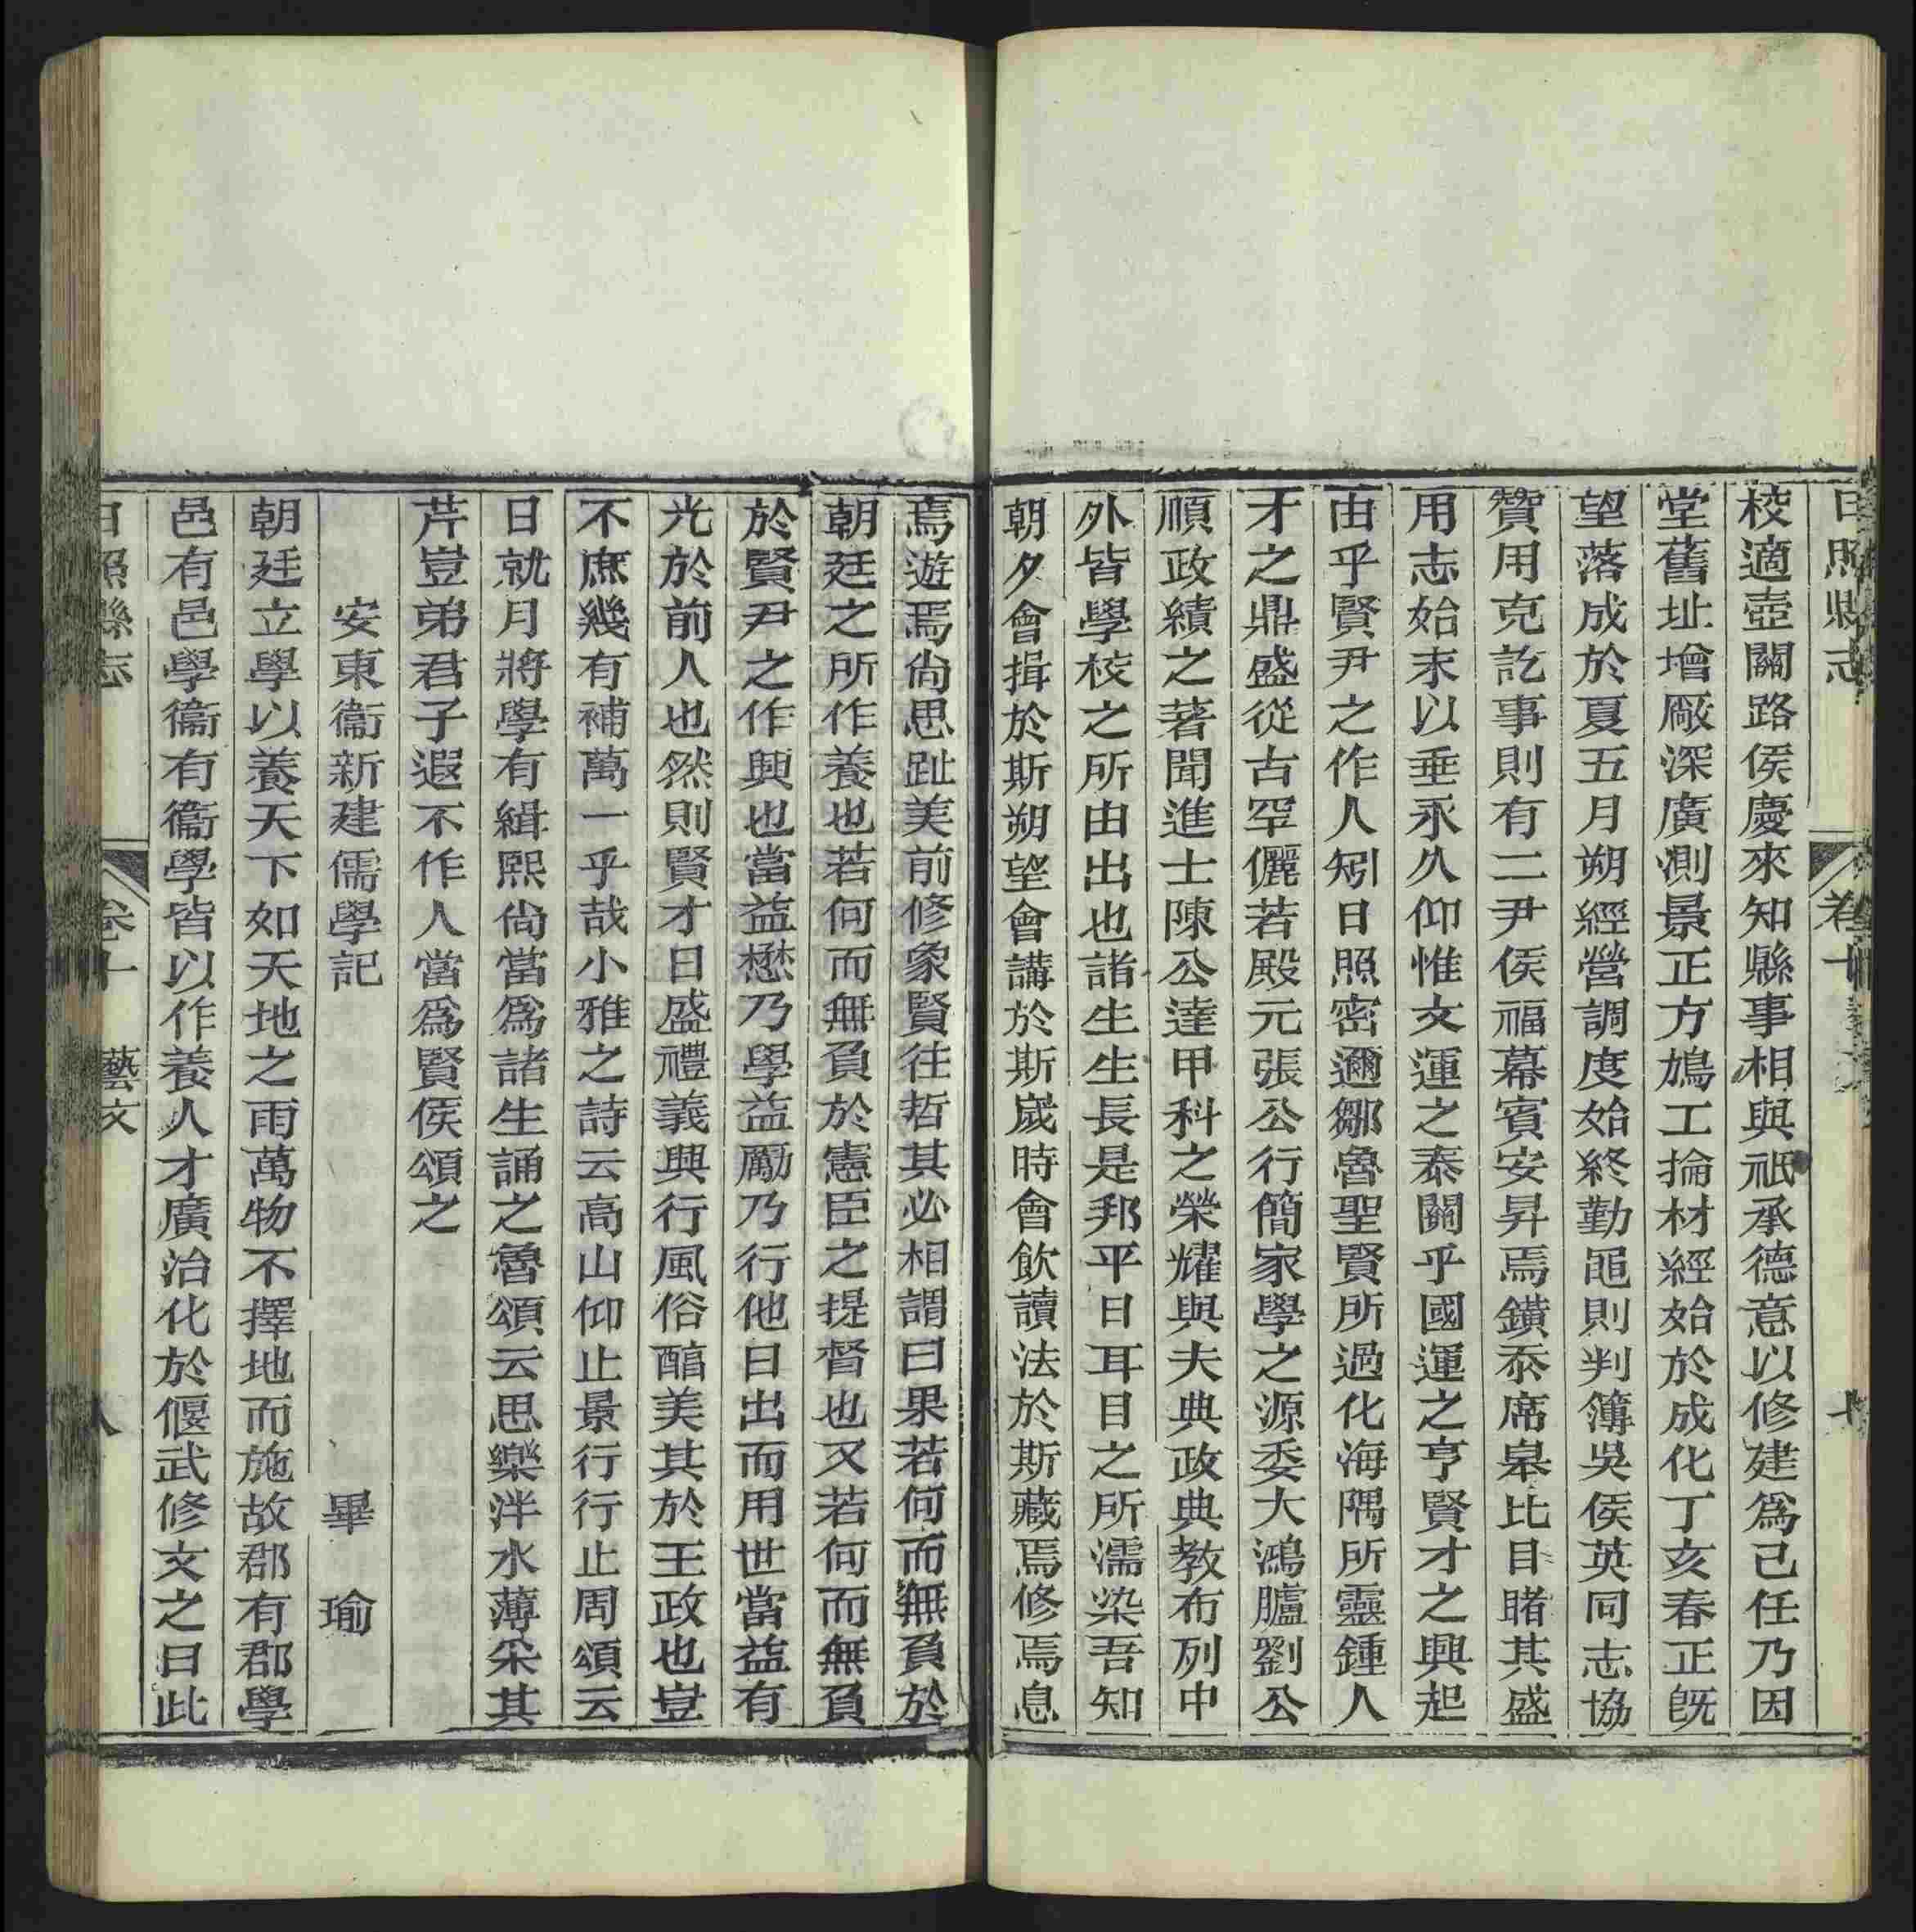 日照縣志
卷十
校適壺關路侯慶來知縣事相與祇承德意以修建爲己任乃因
堂舊址增厰深廣測景正方鳩工掄材經始於成化丁亥春正旣
望落成於夏五月朔經營調度始終勤黽則判簿吳侯英同志協
贊用克訖事則有二尹侯福幕賓安昇焉鐄忝席皋比目睹其盛
用志始末以垂永久仰惟文運之泰關乎國運之亨賢才之興起
由乎賢尹之作人矧日照密邇鄒魯聖賢所過化海隅所靈鍾人
才之鼎盛從古罕儷若殿元張公行簡家學之源委大鴻臚劉公
順政績之著聞進士陳公達甲科之榮耀與夫典政典教布列中
外皆學校之所由出也諸生生長是邦平日耳目之所濡染吾知
朝夕會揖於斯朔望會講於斯嵗時會飲讀法於斯藏焉修焉息
焉遊焉尙思趾美前修象賢往哲其必相謂曰果若何而無負於
朝廷之所作養也若何而無負於憲臣之提督也又若何而無負
於賢尹之作興也當益懋乃學益勵乃行他日出而用世當益有
光於前人也然則賢才日盛禮義興行風俗醕美其於王政也豈
不庶幾有補萬一乎哉小雅之詩云高山仰止景行行止周頌云
日就月將學有緝熙尙當爲諸生誦之魯頌云思樂泮水薄采其
芹豈弟君子遐不作人當爲賢侯頌之
安東衞新建儒學記 畢瑜
朝廷立學以養天下如天地之雨萬物不擇地而施故郡有郡學
邑有邑學衞有衞學皆以作養人才廣治化於偃武修文之日此
日照縣志 卷十 藝文 八